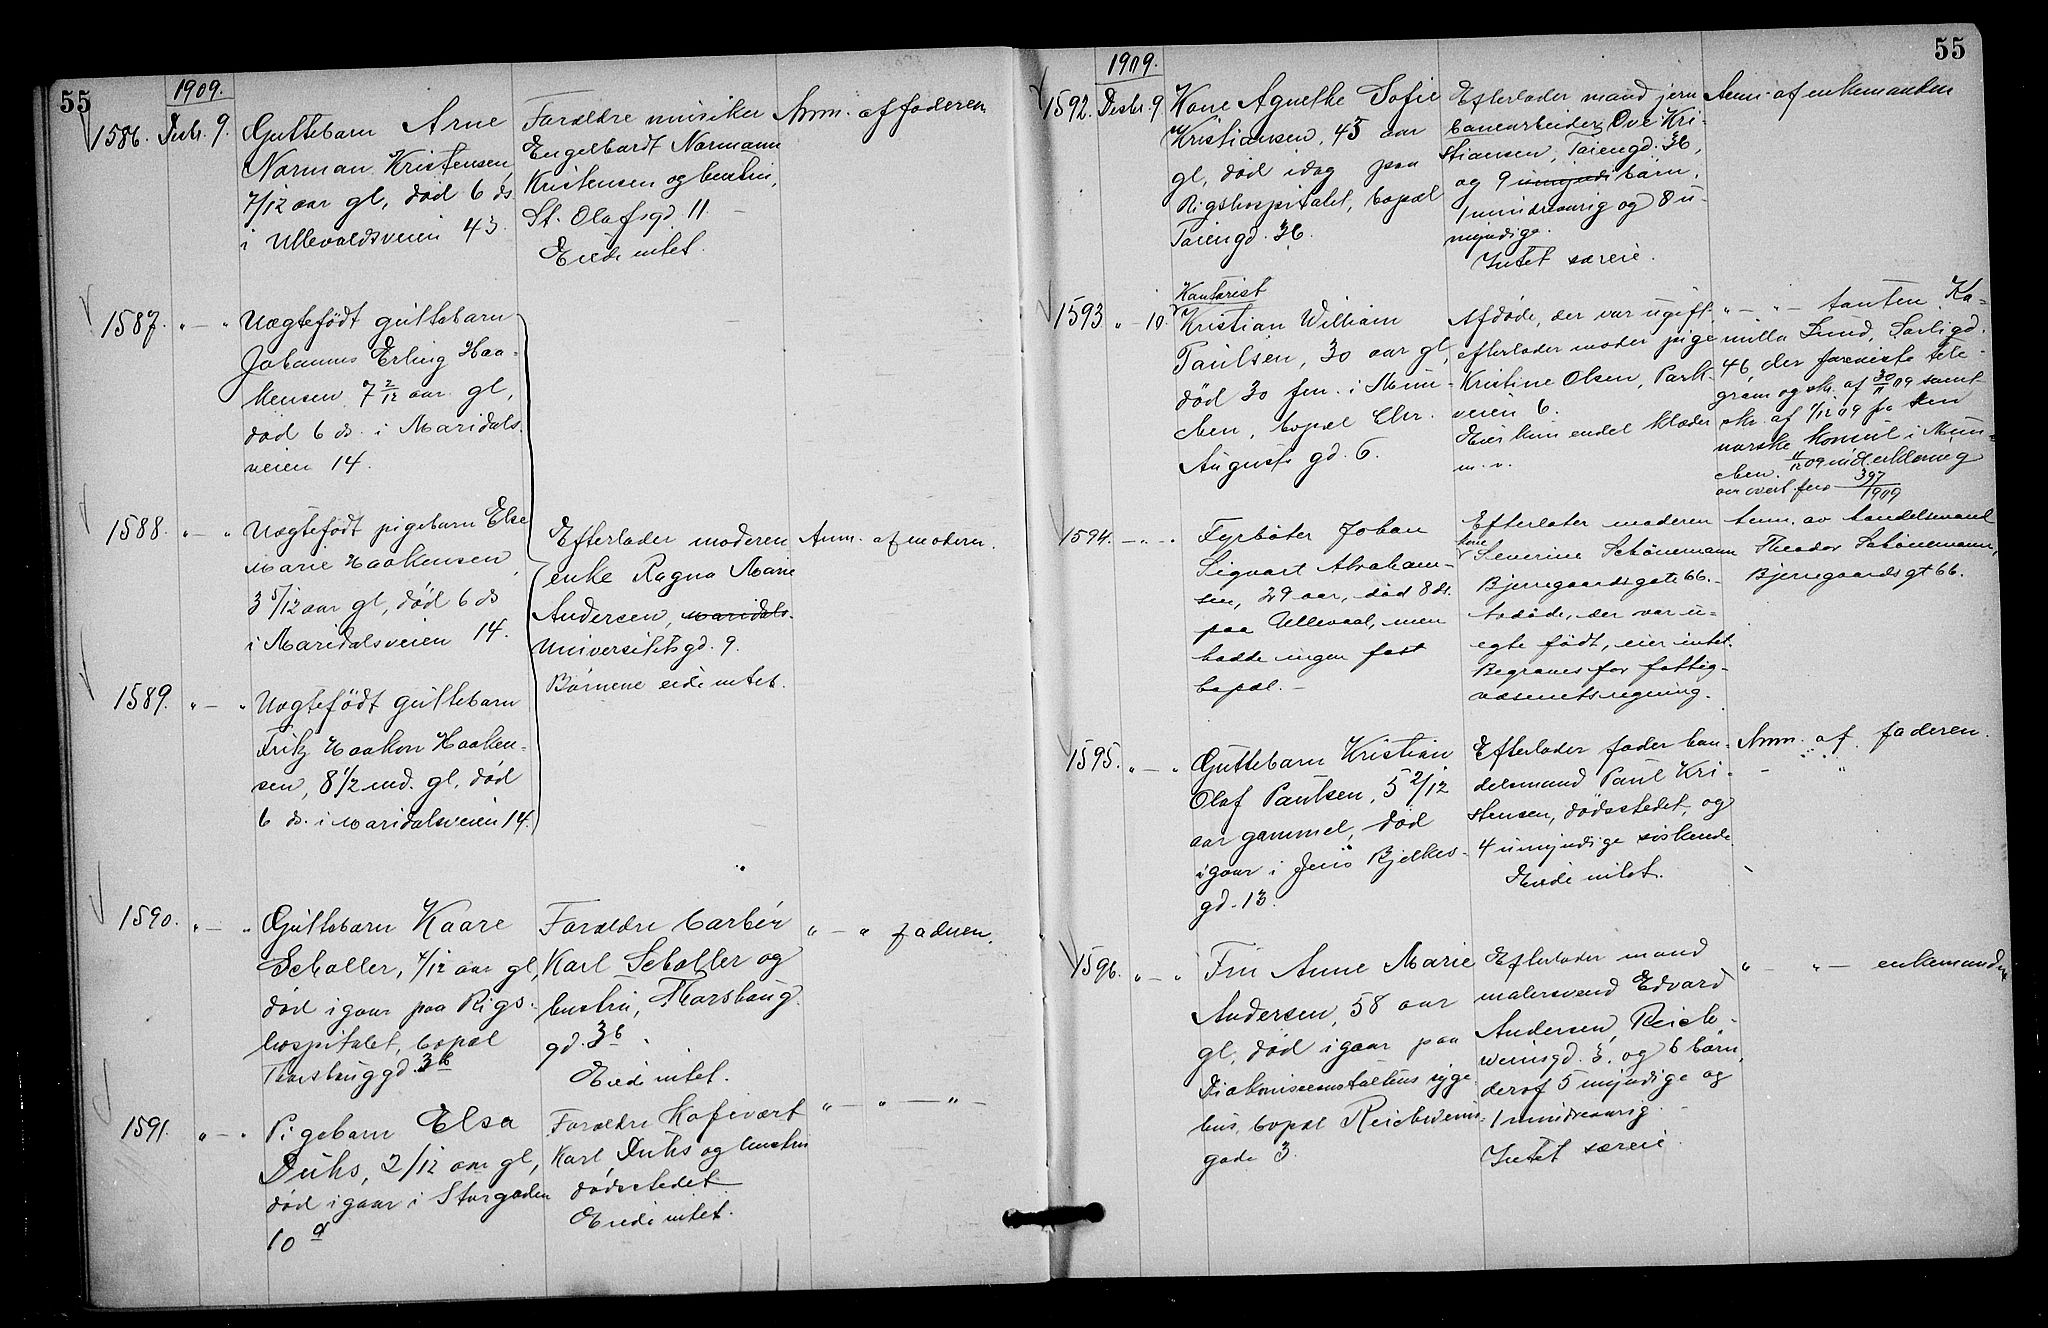 55
1909.
1586. Decbr. 9.
Guttebarn Arne
Norman Kristensen,
7/12 aar gl, død 6 ds
i Ullevoldsveien 43.
Forældre musiker
Engelhardt Normann
Kristensen og hustru,
St. Olafsgd. 11. –
Eiede intet.
Anm. af faderen
1587. " — "
Uægtefödt guttebarn
Johannes Erling Haa-
kensen 7 2/12 aar gl,
død 6 ds. i Maridals-
veien 14.
1588. " — "
Uægtefödt pigebarn Else
Marie Haakensen,
3 5/12 aar gl, død 6 ds
i Maridalsveien 14.
Efterlader moderen
enke Ragna Marie
Andersen, maridals-
Universitetsgd. 9.
Börnene eide intet.
Anm. af moderen.
1589. " — "
Uægtefödt guttebarn
Fritz Haakon Haaken-
sen, 8 1/2 md. gl. død
6 ds. i Maridalsveien 14.
1590. " — "
Guttebarn Kaare
Scholler, 4/12 aar gl,
död igaar paa Rigs-
hospitalet, bopæl
Thorshauggd. 3b
Forældre barbér
Karl Scholler og
hustru, Thorshaug-
gd. 3b.
Eiede intet.
" — " faderen.
1591. " — "
Pigebarn Elsa
Duhs, 2/12 aar gl,
død igaar i Storgaden
10 a
Forældre Kafevært
Karl Duhs og hustru
dødsstedet
Eiede intet.
" — " — " —
55
1909.
1592. Decbr. 9
Kone Agnethe Sofie
Kristiansen, 45 aar
gl, død idag paa
Rigshospitalet, bopæl
Töiengd. 36.
Efterlader mand jern
banearbeider Ove Kri-
stiansen, Töiengd. 36,
og 9 umyndi börn,
1 mindreaarig og 8 u-
myndige.
Intet særeie.
Anm. af enkemanden
1593 " — 10.
Kontorist
Kristian William
Paulsen, 30 aar gl,
død 30 f.m. i Mün-
chen, bopæl Chr.
Augusts gd. 6.
Afdöde, der var ugift
efterlader moder pige
Kristine Olsen, Park-
veien 6.
Eier kun endel klæder
m.v.
" — " — tanten Ka-
milla Lund, Sorligd.
46 der foreviste tele-
gram og skr. af 30/11 09 samt
skr. af 1/12 09 fra den
norske Konsul i Mün-
chen.
397/1909
1594. — " — "
Fyrböter Johan
Sigvart Abraham-
sen, 29 aar, død 8 ds.
paa Ullevaal, men
hadde ingen fast
bopæl. –
Efterlater moderen
kone
Severine Schönemann
Bjerregaardsgate 66. –
Avdöde, der var u-
egte født, eier intet.
Begraves for fattig-
væsenets regning.
Anm. av handelsmand
Theodor Schönemann,
Bjerregaardsgt 66.
1595. " — "
Guttebarn Kristian
Olaf Paulsen, 5 2/12
aar gammel, død
igaar i Jens Bjelkes-
gd. 13.
Efterlader fader han-
delsmand Paul Kri-
stensen, dödsstedet, og
4 umyndige söskende
Eiede intet.
Anm. af faderen.
1596. " — "
Fru Anne Marie
Andersen, 58 aar
gl, død igaar paa
Diakonisseanstaltens syge-
hus, bopæl Reichweins-
gade 3.
Efterlader mand
malersvend Edvard
Andersen, Reich-
weinsgd. 3. og 6 börn,
deraf 5 myndige og
1 mindreaarig. –
Intet særeie.
" — " — enkemanden